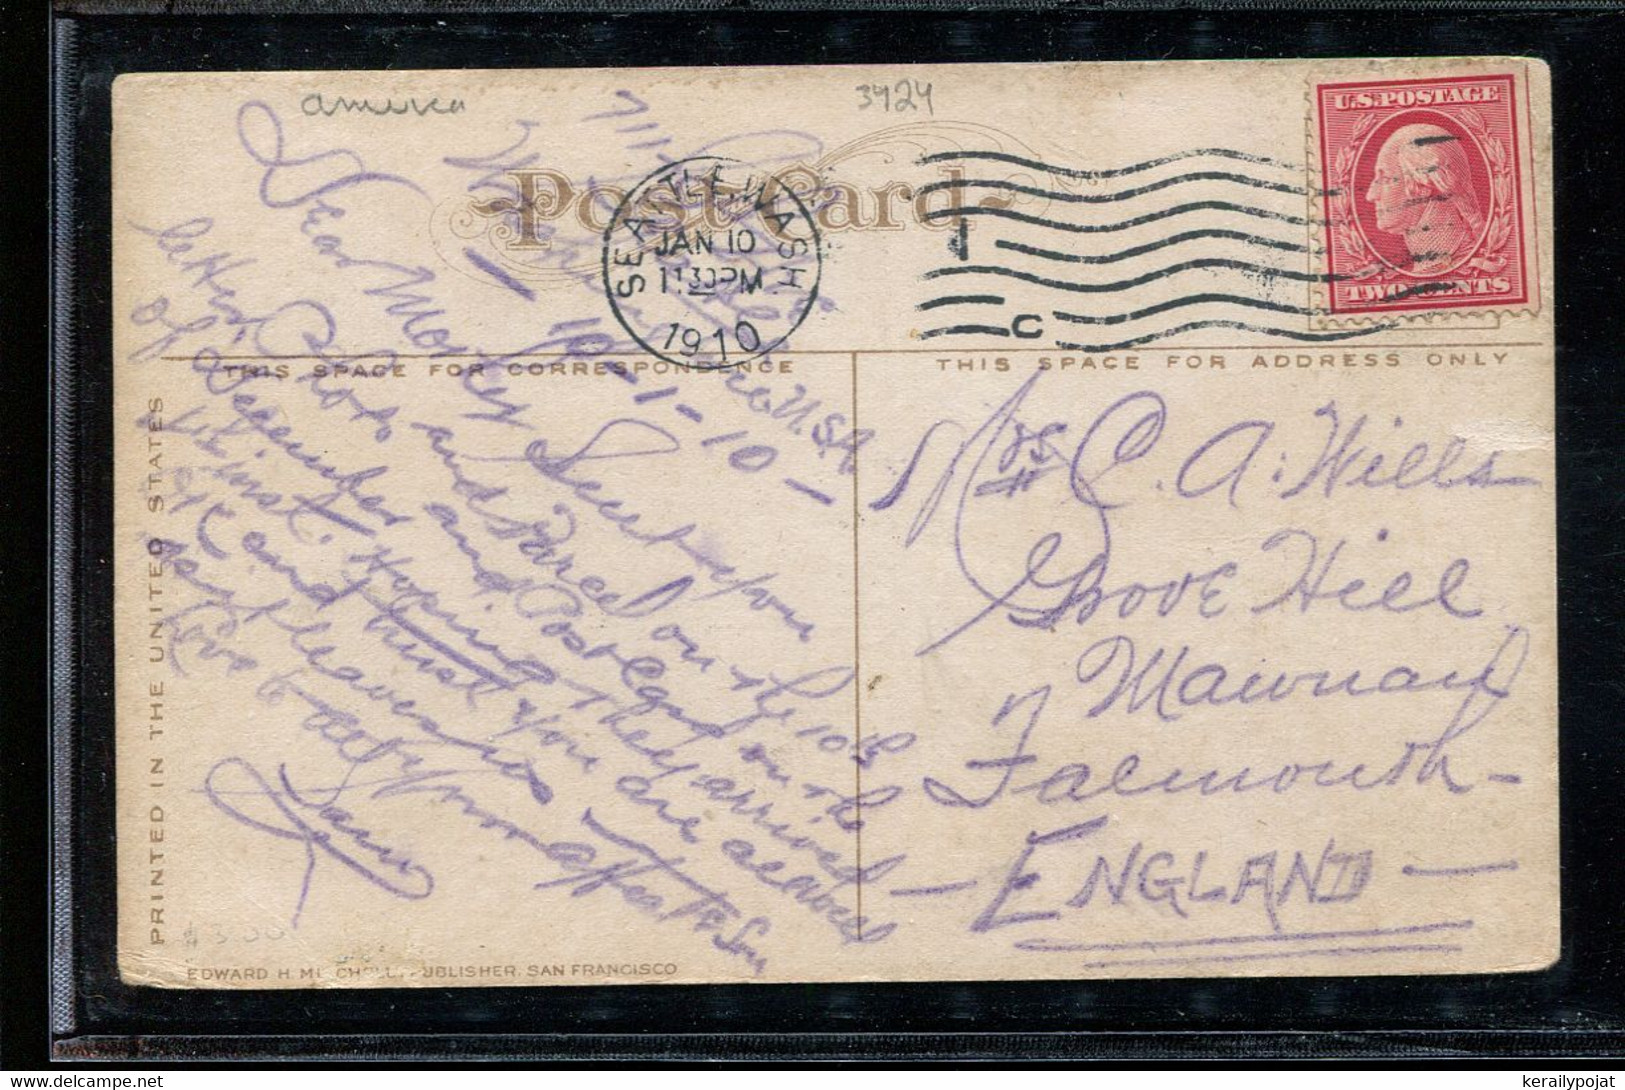 america
3424
U.S. POSTAGE
TWO CENTS
Post Card
SEATTLE, WASH.
JAN 10
11 30 PM
1910
C
THIS SPACE FOR CORRESPONDENCE
THIS SPACE FOR ADDRESS ONLY
711-
U.S.A
- 10-1-10 -
Dear Mother Sent you
letter, Photo and Parcel on the 10th
of December and Post Card on the
inst. Hoping they arrived
OK and trust you are all well
as it leaves us
Love to all
Mrs C. A. Wills
Grove Hill
Mawnan
Falmouth -
- ENGLAND -
PRINTED IN THE UNITED STATES
$3.00
EDWARD H. MITCHELL, PUBLISHER, SAN FRANCISCO
kerailypojat
© www.delcampe.net
kerailypojat